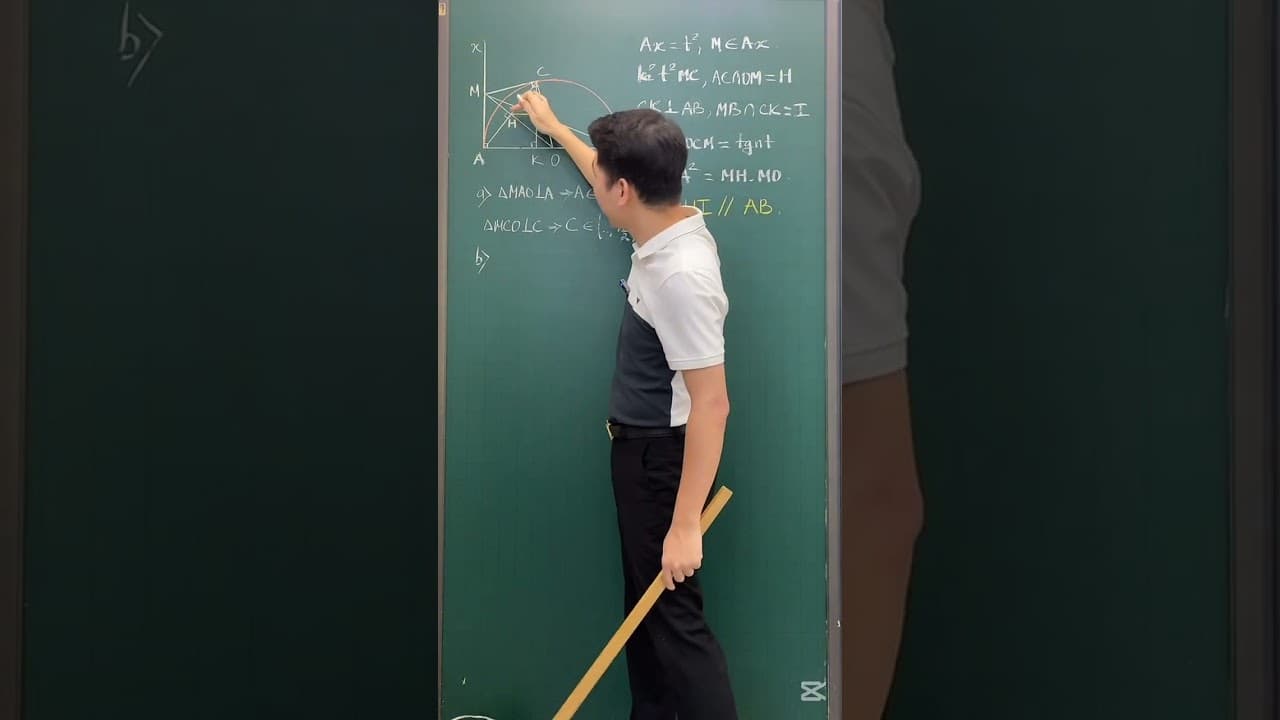 b>
x
C
M
H
A
K O
Ax = t², M ∈ Ax
t² MC, AC∩OM = H
CK ⊥ AB, MB ∩ CK = I
OCM = tgnt
A² = MH.MO
HI // AB.
a> ΔMAO⊥A → A ∈
ΔMCO⊥C → C ∈
b>